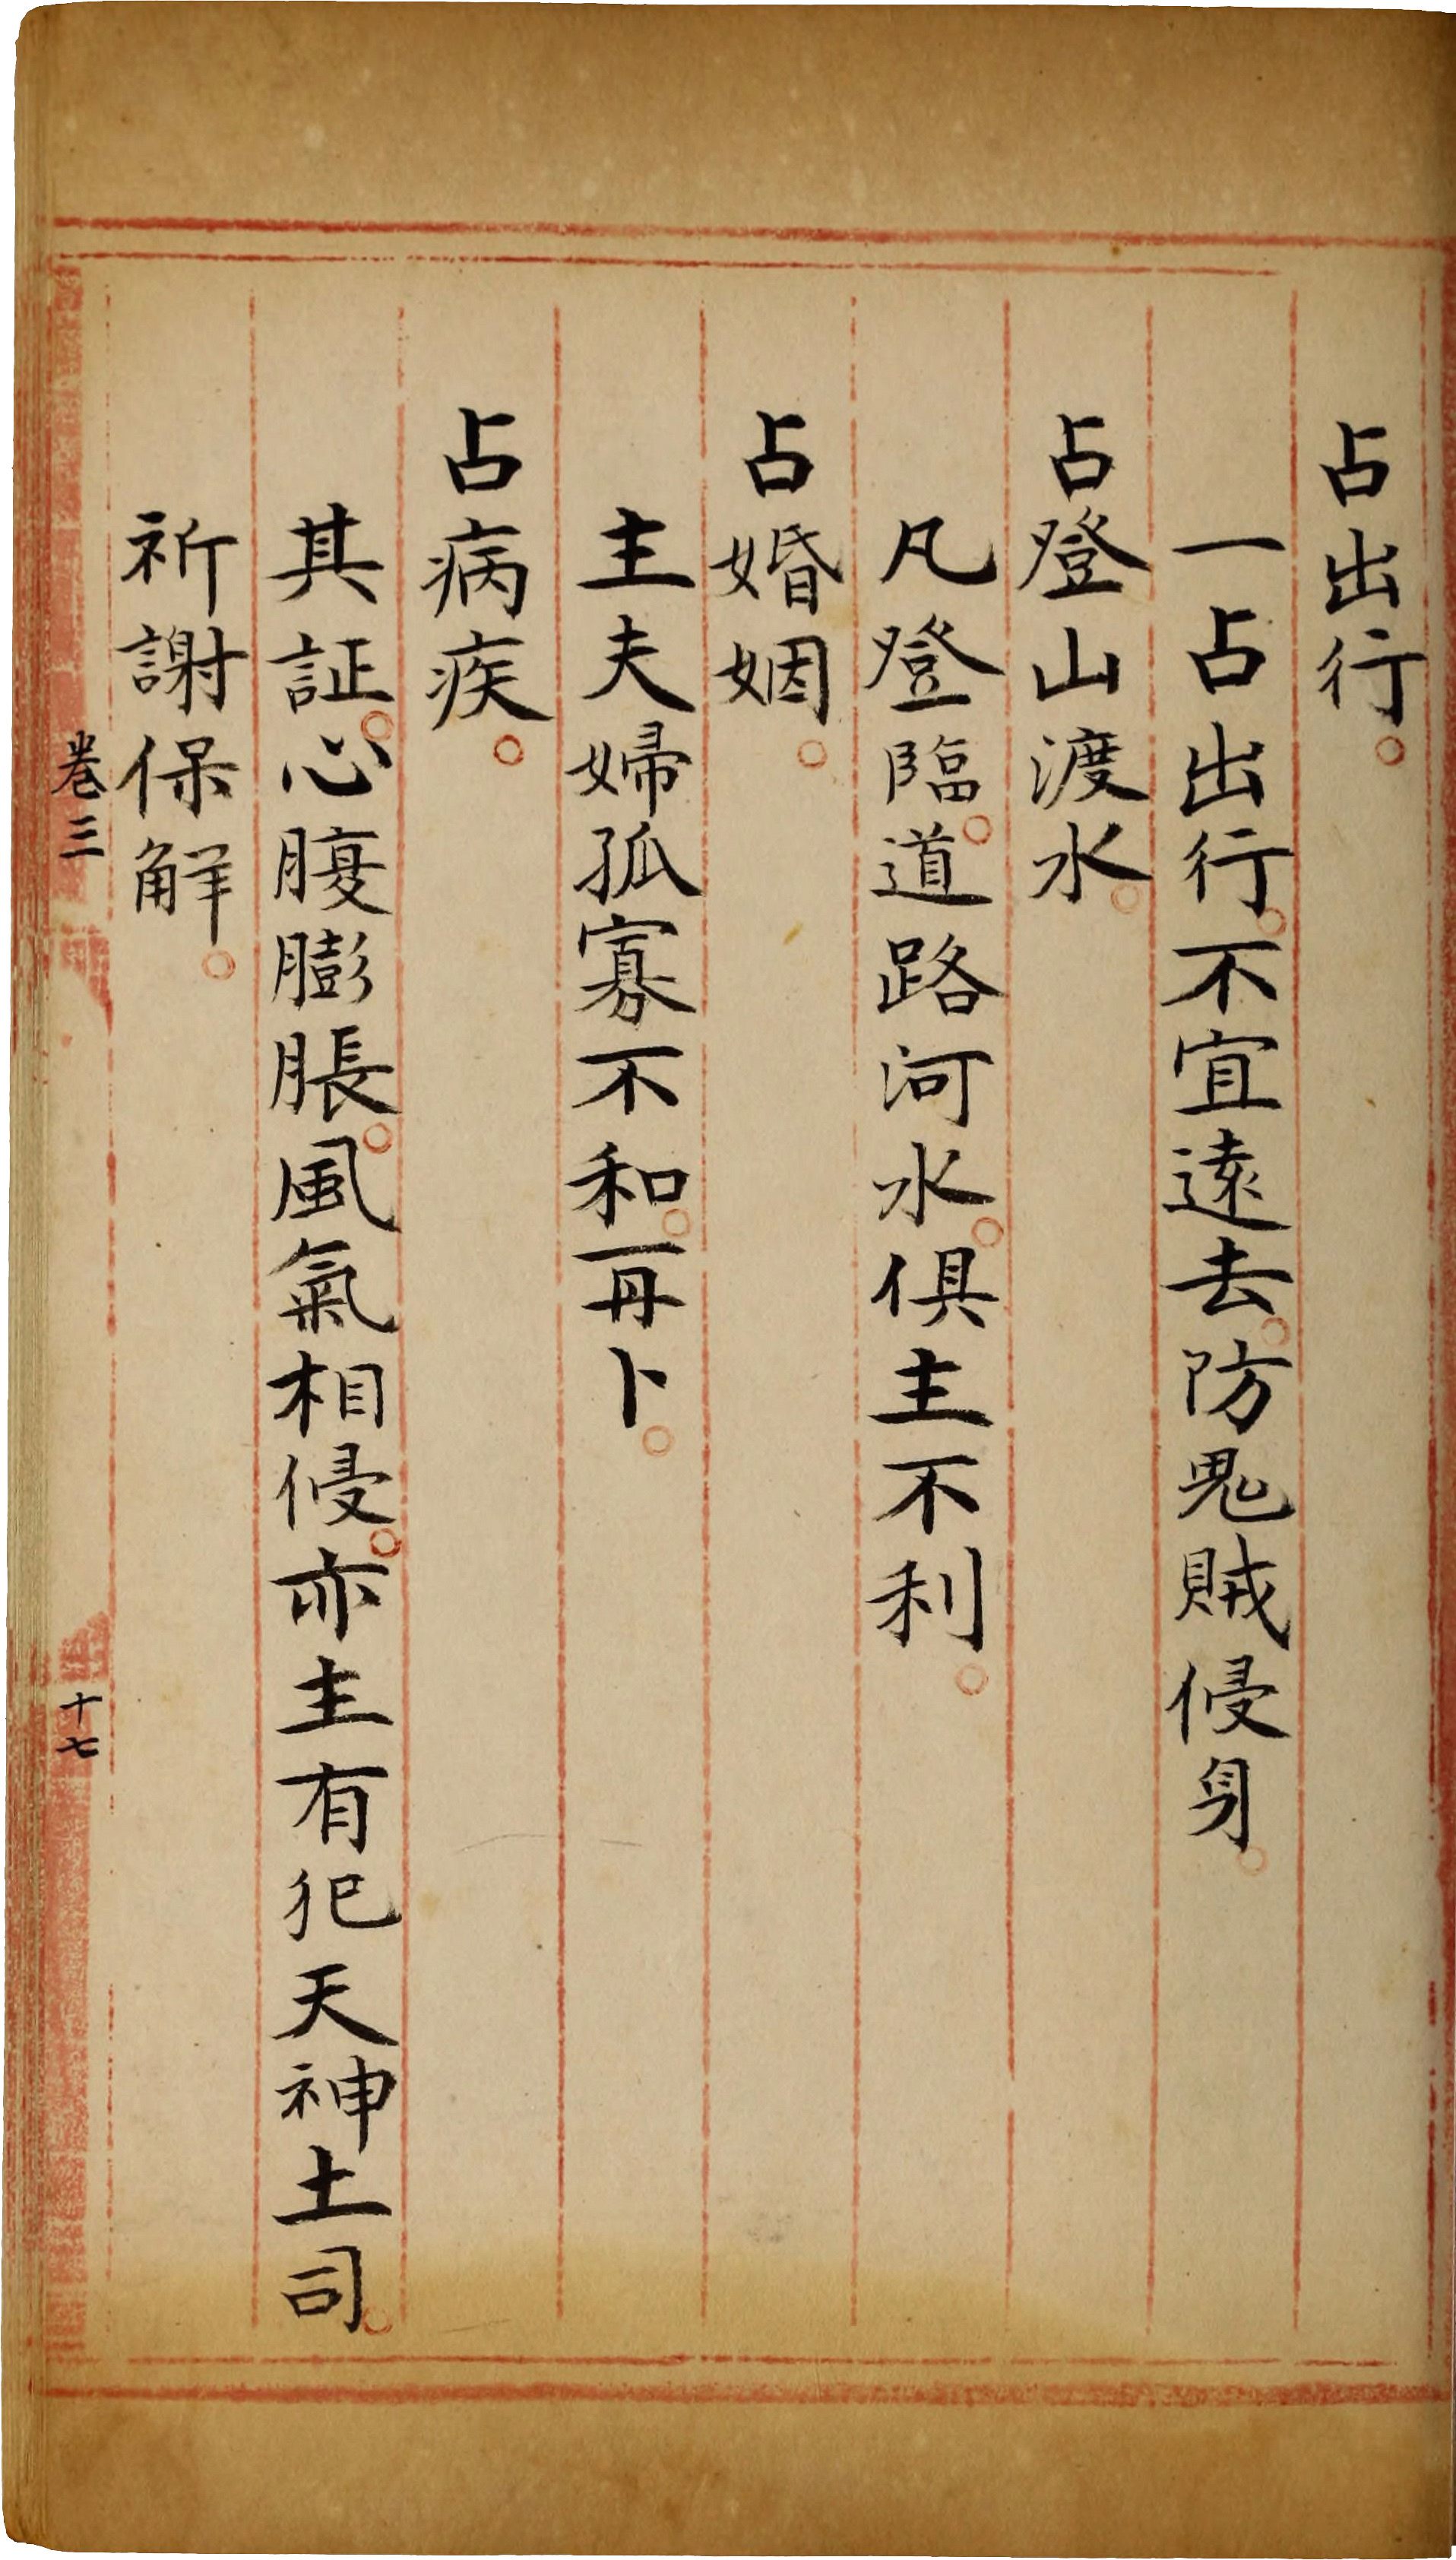 占出行。
一占出行。不宜遠去。防鬼賊侵身。
占登山渡水。
凡登臨。道路河水。俱主不利。
占婚姻。
主夫婦孤寡不和。再卜。
占病疾。
其証。心腹膨脹。風氣相侵。亦主有犯天神土司。
祈謝保解。
卷三
十七